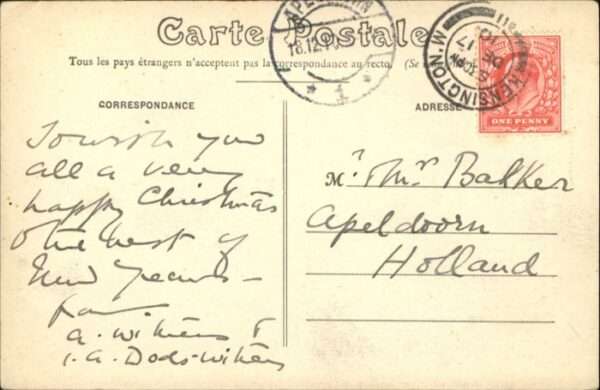 Carte Postale
Tous les pays étrangers n'acceptent pas la correspondance au recto. (Se
CORRESPONDANCE
ADRESSE
APELDOORN
18.12.10
1
KENSINGTON.W.
DE 17
10
ONE PENNY
To wish you
all a very
happy Christmas
& the best of
New Years –
from
A. Wilkens &
A. Dods-Wilkens
M. Mr Bakker
Apeldoorn
Holland